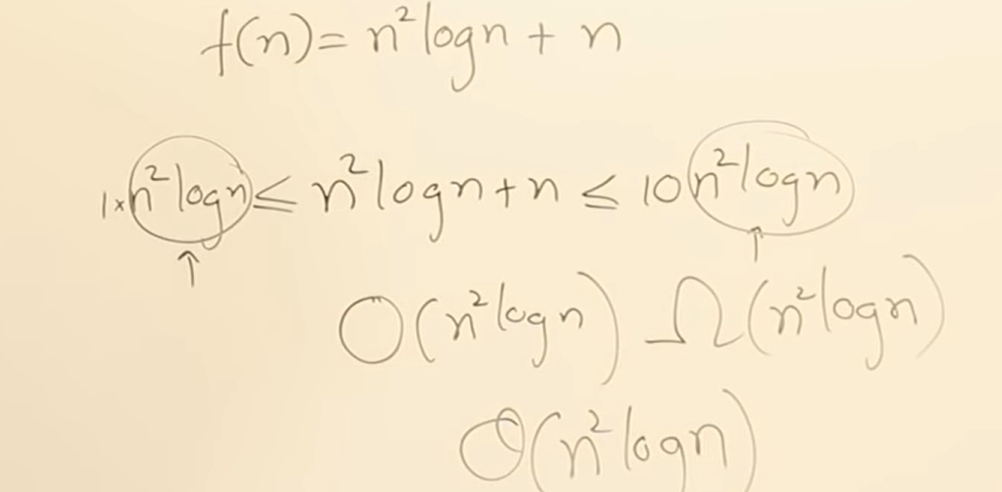 f(n) = n² log n + n
1 × n² log n ≤ n² log n + n ≤ 10 n² log n
↑ ↑
O(n² log n) Ω(n² log n)
Θ(n² log n)